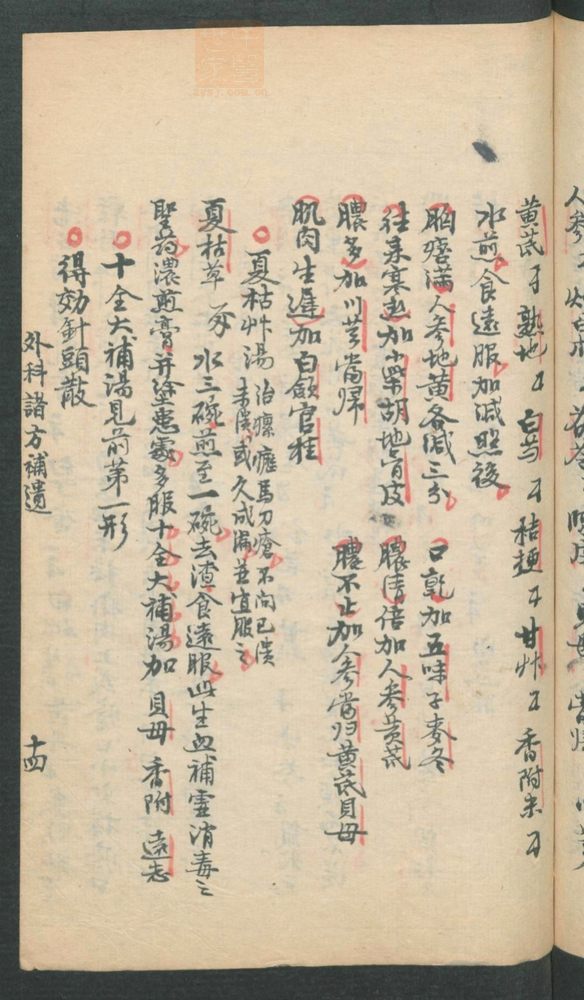 黃芪 熟地 白芍 桔梗 甘艸 香附米
水煎食遠服加減照後
胸痞滿人參地黃各減三分 口乾加五味子麥冬
往來寒熱加柴胡地骨皮 膿清倍加人參黃芪
膿多加川芎當歸 膿不止加人參當归黃芪貝母
肌肉生遲加白斂官桂
夏枯艸湯 治瘰癧馬刀瘡不问已潰
未潰或久成漏並宜服之
夏枯草 水三碗煎至一碗去渣食遠服此生血補虛消毒之
聖药濃煎膏并塗患處多服十全大補湯加 貝母 香附 遠志
十全大補湯見前第一形
得効針頭散
外科諸方補遺 十四